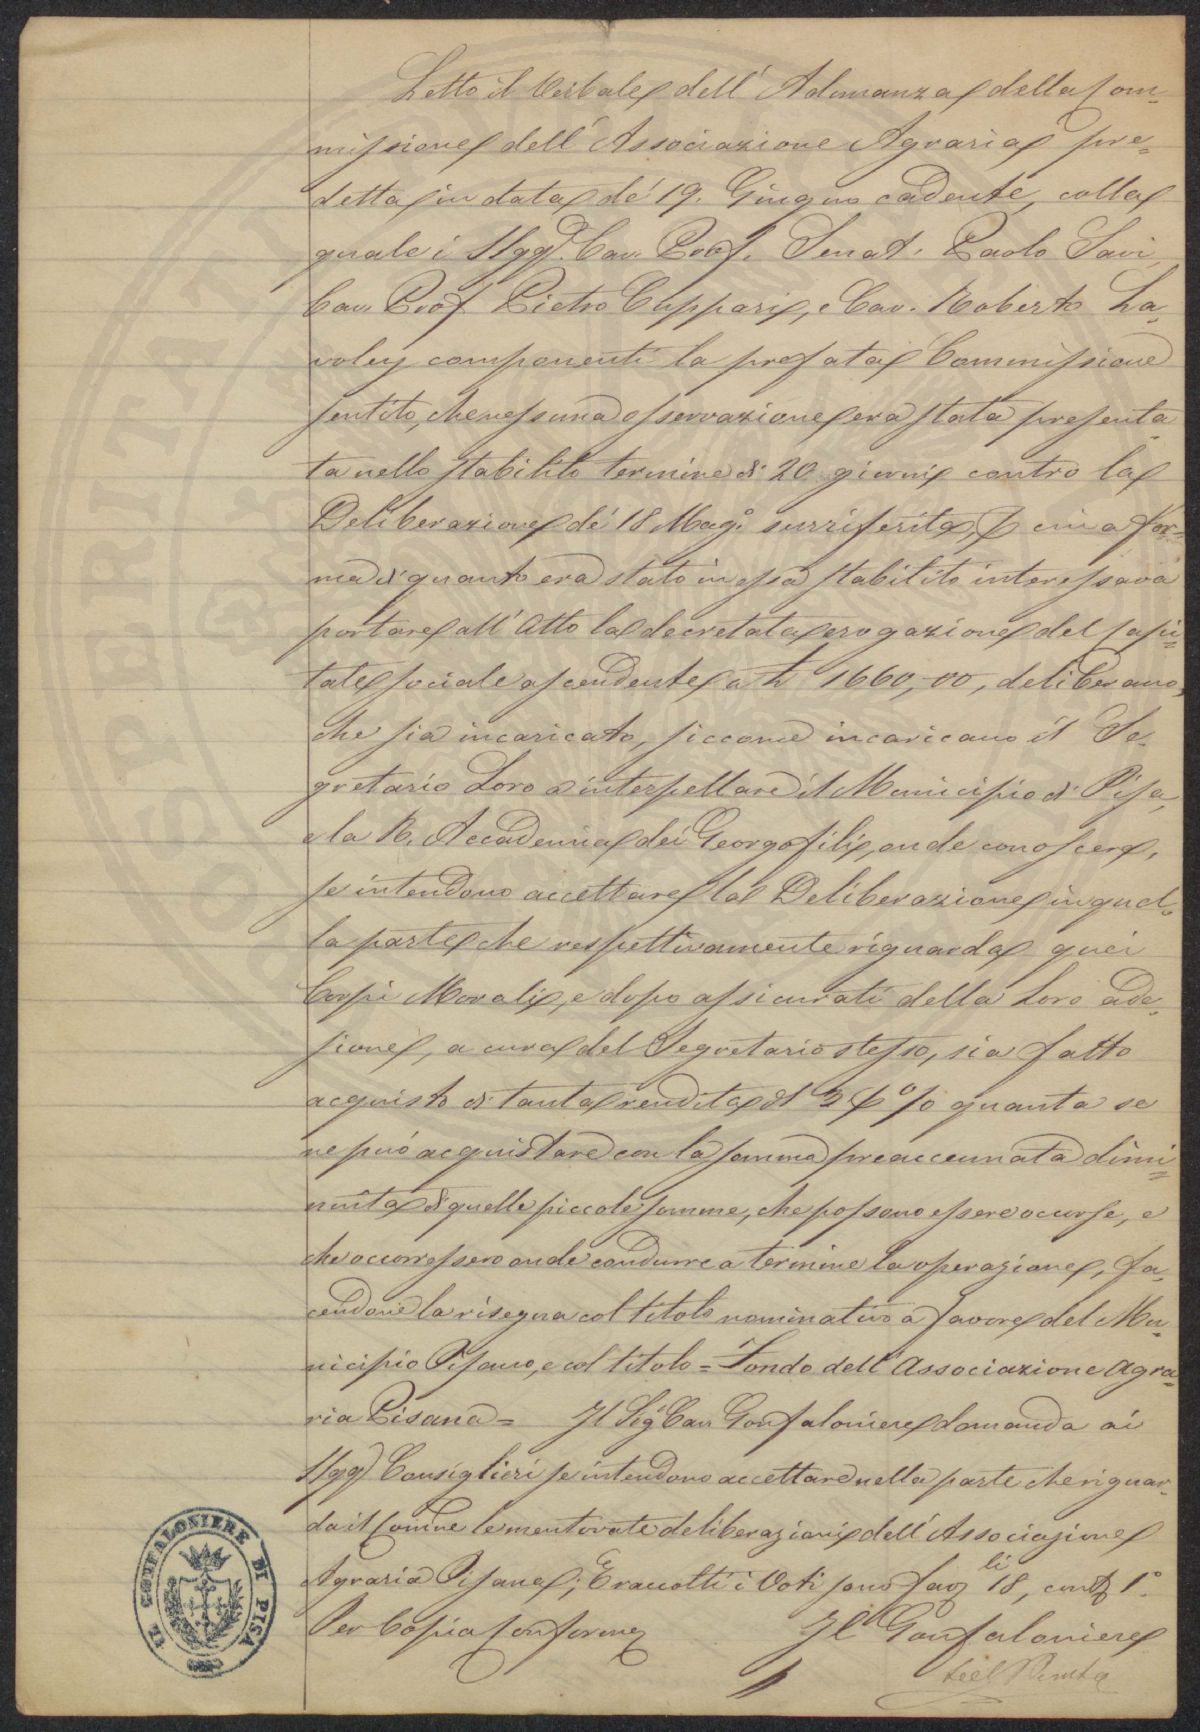 Letto il Verbale dell' Adunanza della Com-
missione dell' Associazione Agraria pre-
detta in data de' 19. Giugno cadente, colla
quale i Sigg.i Cav. Prof. Senat. Paolo Savi,
Cav. Prof. Pietro Cuppari, e Cav. Roberto La-
woley componenti la prefata Commissione
sentito, che nessuna osservazione era stata presenta
ta nello stabilito termine di 20 giorni contro la
Deliberazione de' 18 Mag.o surriferita, e cui a for-
ma di quanto era stato in essa stabilito interessava
portare all' Atto la decretata erogazione del Capi-
tale sociale ascendente a £ 1660,00, deliberano,
che sia incaricato, siccome incaricano il Se-
gretario Loro a interpellare il Municipio di Pisa,
e la R. Accademia dei Georgofili, onde conoscere,
se intendono accettare la Deliberazione in quel-
la parte che respettivamente riguarda quei
Corpi Morali, e dopo assicurati della Loro ade-
sione, a cura del Segretario stesso, sia fatto
acquisto di tanta rendita al % quanta se
ne può acquistare con la somma preaccennata dimi-
nuita di quelle piccole somme, che possono essere occorse, e
che occorressero onde condurre a termine la operazione, fa-
cendone la risegna col titolo nominativo a favore del Mu-
nicipio Pisano, e col titolo = Fondo dell' Associazione Agra-
ria Pisana = Il Sig.r Cav. Gonfaloniere domanda ai
Sigg.i Consiglieri se intendono accettare nella parte che riguar-
da il Comune le mentovate deliberazioni dell' Associazione
Agraria Pisana; E raccolti i Voti sono fav.li 18, cont. 1.o
Per Copia Conforme
Il Gonfaloniere
IL GONFALONIERE DI PISA
PROSPERITATI